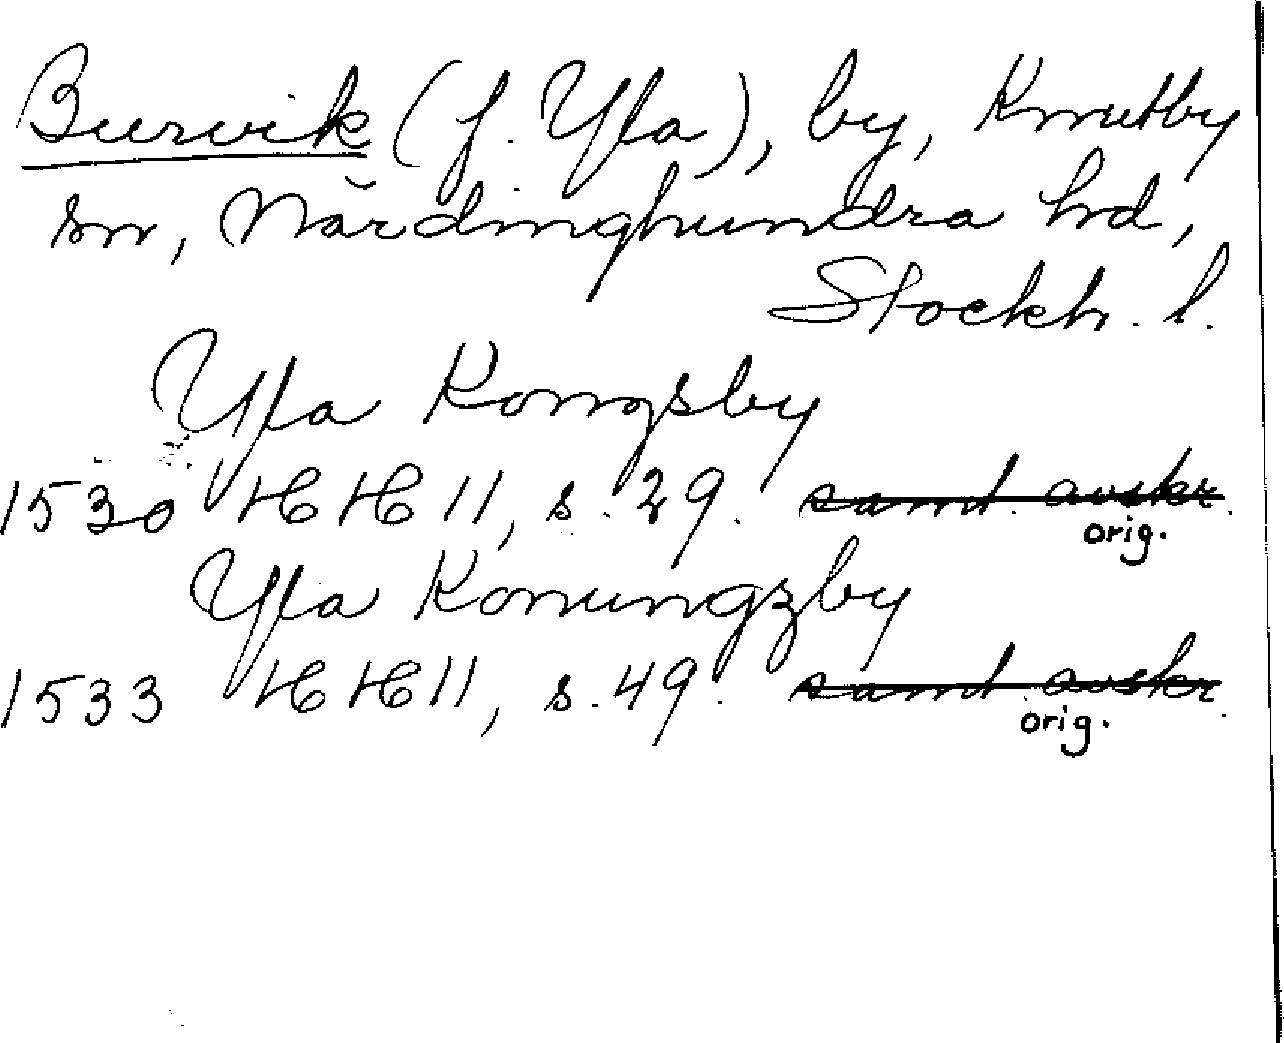 Burvik (f. Yla), by, Knutby
sn, Närdinghundra hd,
Stockh. l.
Yla Kongsby
1530 HH 11, s. 29. samt. avskr.
orig.
Yla Konungzby
1533 HH 11, s. 49. samt. avskr.
orig.